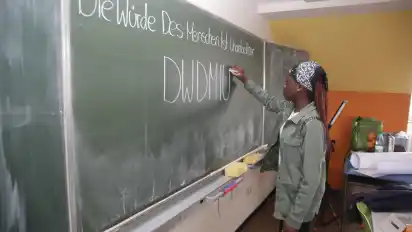 Die Würde Des Menschen Ist Unantastbar
DWDMIU